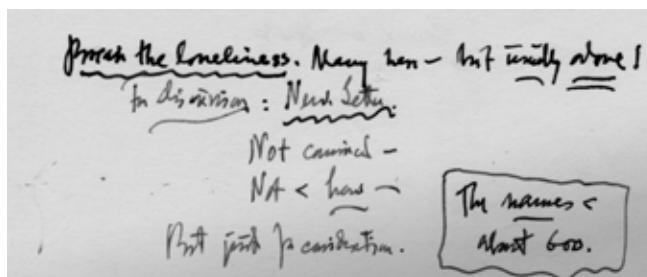 Break the loneliness. Many have – but usually alone!
For discussion: News Letter.
Not convinced –
Not < have –
But just for consideration.
The names <
about 600.